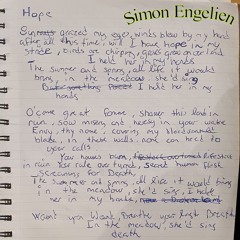 Hope
Simon Engelien
grazed my eyes, winds blow by my hand
after all this time, will I have hope in my
stride, birds are chirping, grass grows on our land
I held her in my hands
The summer and spring, all like it would
bring, in the meadow she'd sing
I held her in my
hands
O'come great fomme, shower this land in
ruin, sow misery and heresy in your wake
Envy, thy name, covering my bloodsoaked
blade, in these walls, none can heed to
your calls
Your haven burn,
in rise for rule over turned, flesh
Screaming for Death
The Summer and spring, all like it would bring
in the meadow, she'd sing, I held
her in my hands,
Want you Want, your last breath
In the meadow, she'd sing
death